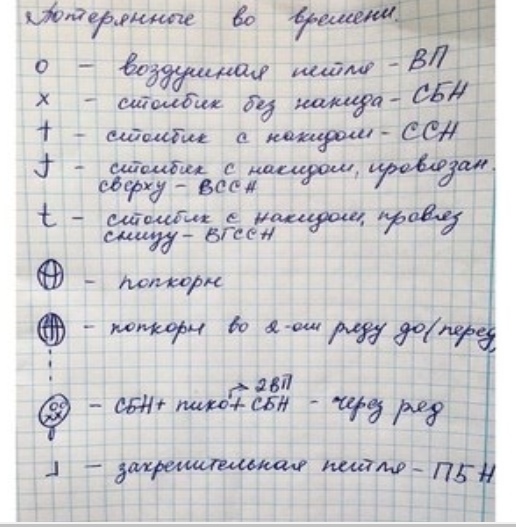 Потерянные во времени.
o – воздушная петля – ВП
x – столбик без накида – СБН
† – столбик с накидом – ССН
– столбик с накидом, провязан.
сверху – ВССН
t – столбик с накидом, провяз
снизу – ВГССН
– попкорн
– попкорн во 2-ом ряду до/перед
→ 2ВП
– СБН + пико + СБН – через ряд
– закрепительная петля – ПБН